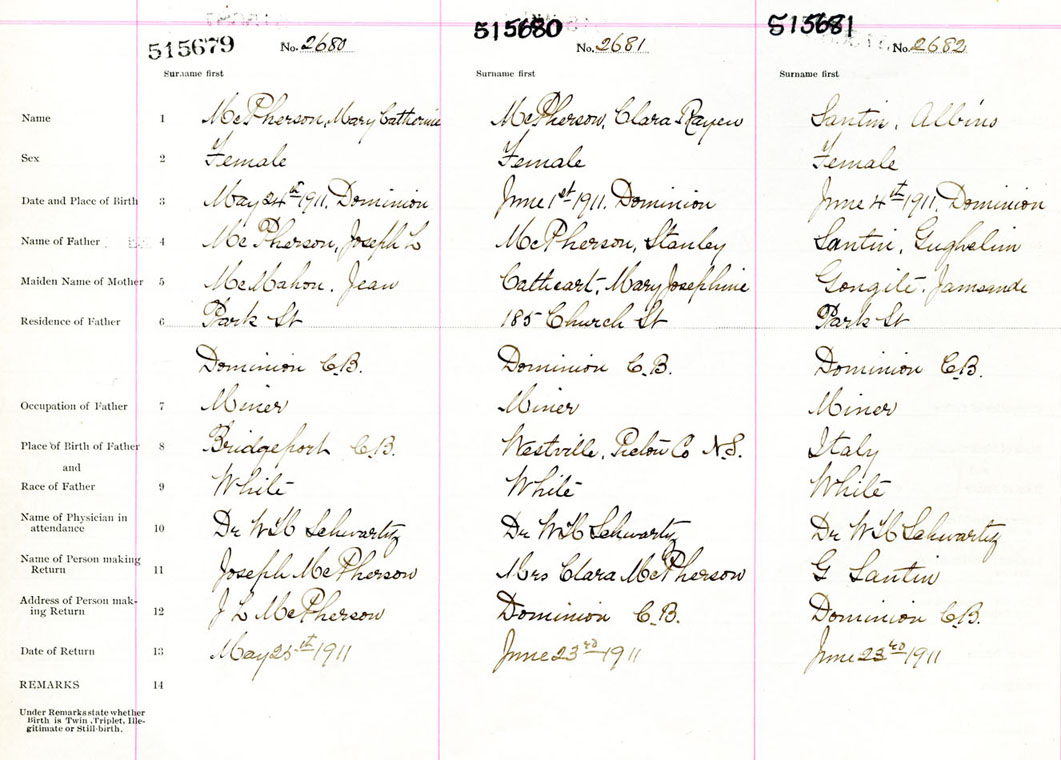 515679 No. 2680 515680 No. 2681 515681 No. 2682
Surname first Surname first Surname first
Name 1 McPherson, Mary Catherine McPherson, Clara Santin, Albino
Sex 2 Female Female Female
Date and Place of Birth 3 May 24th 1911, Dominion June 1st 1911. Dominion June 4th 1911, Dominion
Name of Father 4 McPherson, Joseph L McPherson, Stanley Santin, Gughelim
Maiden Name of Mother 5 McMahon, Jean Cathcart, Mary Josephine
Residence of Father 6 Park St 185 Church St Park St
Dominion C.B. Dominion C.B. Dominion C.B.
Occupation of Father 7 Miner Miner Miner
Place of Birth of Father 8 Bridgeport C.B. Westville, Pictou Co N.S. Italy
and
Race of Father 9 White White White
Name of Physician in
attendance 10 Dr WH Schwartz Dr WH Schwartz Dr WH Schwartz
Name of Person making
Return 11 Joseph McPherson Mrs Clara McPherson G Santin
Address of Person mak-
ing Return 12 J L McPherson Dominion C.B. Dominion C.B.
Date of Return 13 May 25th 1911 June 23rd 1911 June 23rd 1911
REMARKS 14
Under Remarks state whether
Birth is Twin, Triplet, Ille-
gitimate or Still-birth.